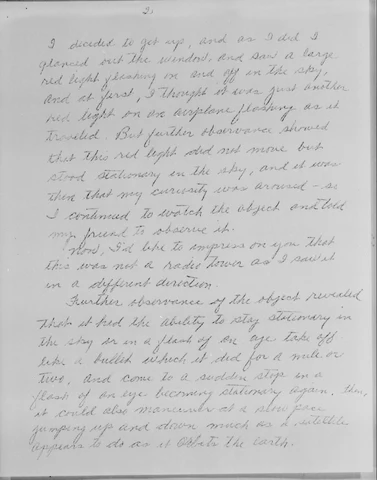 2.
I decided to get up, and as I did I
glanced out the window, and saw a large
red light flashing on and off in the sky,
and at first, I thought it was just another
red light on an airplane flashing as it
traveled. But further observance showed
that this red light did not move but
stood stationary in the sky, and it was
then that my curiosity was aroused - so
I continued to watch the object and told
my friend to observe it.
Now, I'd like to impress on you that
this was not a radio tower as I saw it
in a different direction.
Further observance of the object revealed
that it had the ability to stay stationary in
the sky or in a flash of an eye take off
like a bullet which it did for a mile or
two, and come to a sudden stop in a
flash of an eye becoming stationary again. Then,
it could also maneuver at a slow pace
jumping up and down much as a satellite
appears to do as it orbits the earth.